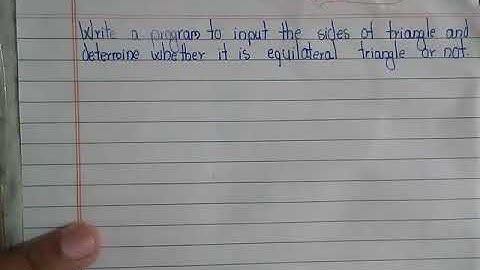 Write a program to input the sides of triangle and
determine whether it is equilateral triangle or not.